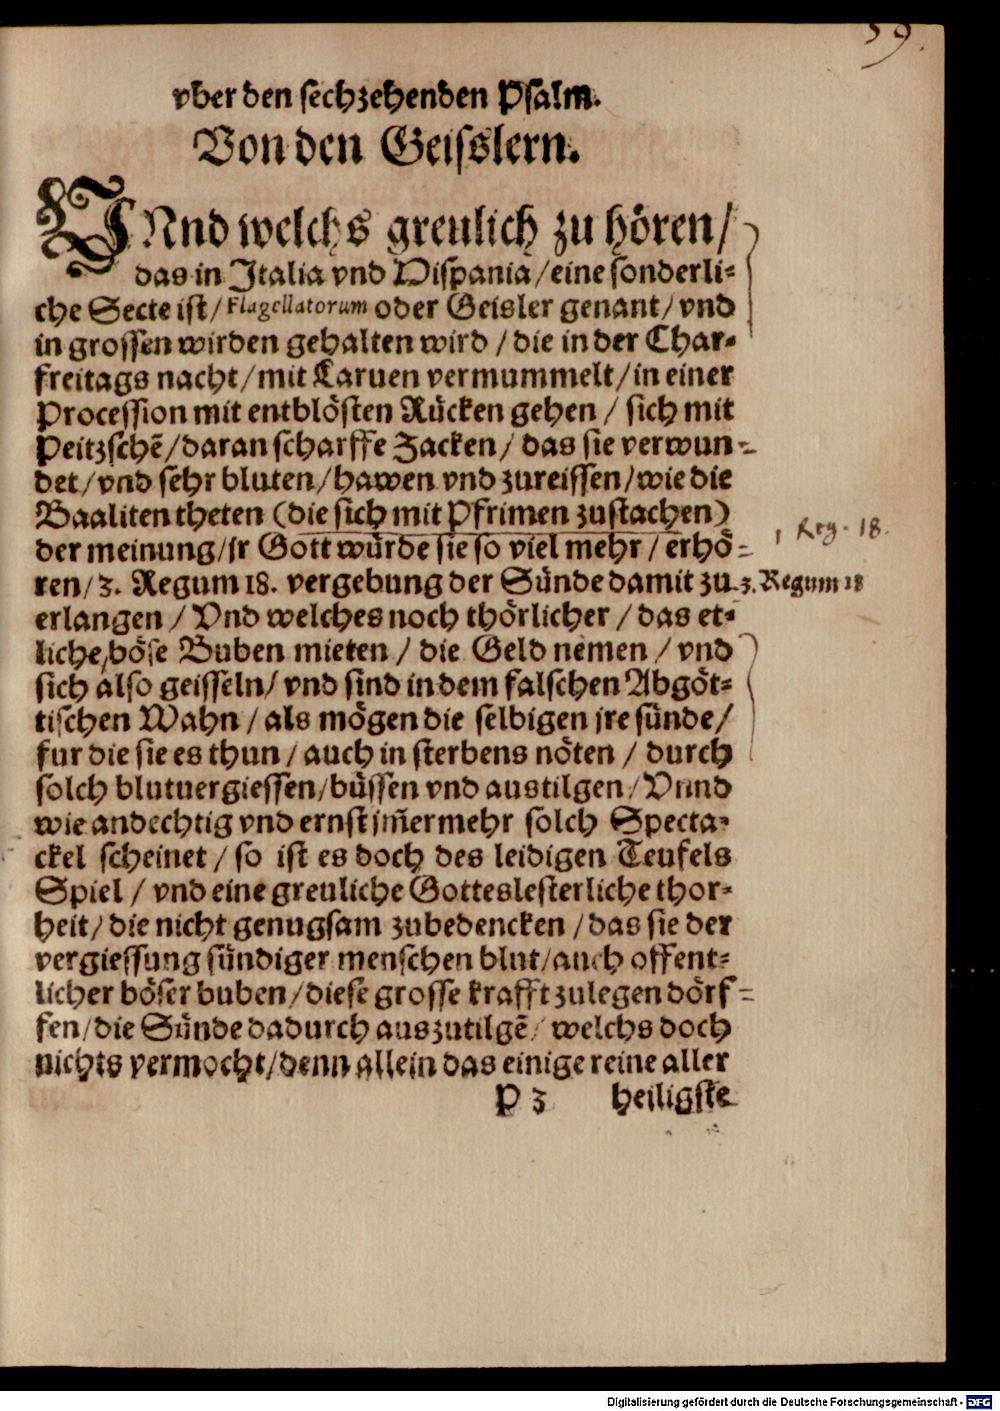 59.
vber den sechzehenden Psalm.
Von den Geisslern.
VNnd welchs greulich zu hören/
das in Italia vnd Hispania/eine sonderli⸗
che Secte ist/Flagellatorum oder Geisler genant/vnd
in grossen wirden gehalten wird/die in der Char⸗
freitags nacht/mit Laruen vermummelt/in einer
Procession mit entblösten Rücken gehen/sich mit
Peitzschē/daran scharffe Zacken/das sie verwun⸗
det/vnd sehr bluten/hawen vnd zureissen/wie die
Baaliten theten (die sich mit Pfrimen zustachen)
der meinung/jr Gott würde sie so viel mehr/erhö⸗
1 Reg. 18.
ren/3. Regum 18. vergebung der Sünde damit zu
3. Regum 18
erlangen/Vnd welches noch thörlicher/das et⸗
liche böse Buben mieten/die Geld nemen/vnd
sich also geisseln/vnd sind in dem falschen Abgöt⸗
tischen Wahn/als mögen die selbigen jre sünde/
fur die sie es thun/auch in sterbens nöten/durch
solch blutuergiessen/büssen vnd austilgen/Vnnd
wie andechtig vnd ernst jm̄ermehr solch Specta⸗
ckel scheinet/so ist es doch des leidigen Teufels
Spiel/vnd eine greuliche Gotteslesterliche thor⸗
heit/die nicht genugsam zubedencken/das sie der
vergiessung sündiger menschen blut/auch offent⸗
licher böser buben/diese grosse krafft zulegen dörf⸗
fen/die Sünde dadurch auszutilgē/welchs doch
nichts vermocht/denn allein das einige reine aller
P 3 heiligste
Digitalisierung gefördert durch die Deutsche Forschungsgemeinschaft - DFG